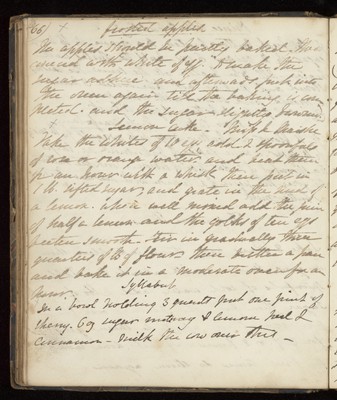 66
frosted apples
The apples should be partly baked. Then
covered with white of egg. To make the
sugar adhere and afterwards put into
the oven again till the baking is com
pleted. and the sugar slightly brown
Lemon cake.
Take the whites of 10 eggs add 3 spoonfuls
of rose or orange water. and beat them
for an hour with a whisk. then put in
1 lb. sifted sugar, and grate in the rind of
a lemon. when well mixed add the juice
of half a lemon and the yolks of ten eggs
beaten smooth. stir in gradually three
quarters of lb of flour. then butter a pan
and bake it in a moderate oven for an
hour.
Syllabub
In a bowl holding 3 quarts put one pint of
sherry. 6 oz sugar nutmeg & lemon peel &
cinnamon - milk the cow over this -